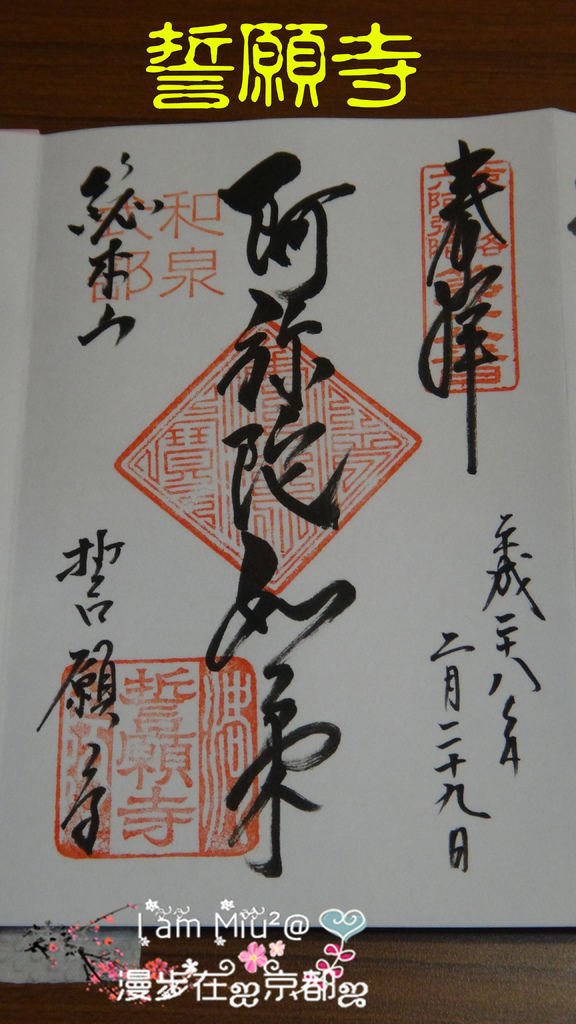 誓願寺
奉拝
平成二十八年
二月二十九日
阿弥陀如来
総本山
誓願寺
和泉
式部
誓願寺
I am Miu²@
漫步在ஐ京都ஐ